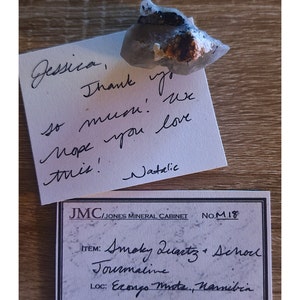 Jessica,
Thank you
so much! We
hope you love
this!
Natalie
JMC/JONES MINERAL CABINET No. M18
ITEM: Smoky Quartz + Schorl
Tourmaline
LOC: Erongo Mnts., Namibia